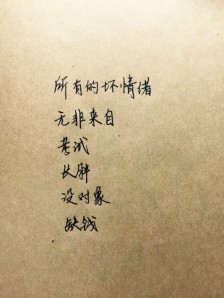 所有的坏情绪
无非来自
考试
长胖
没对象
缺钱